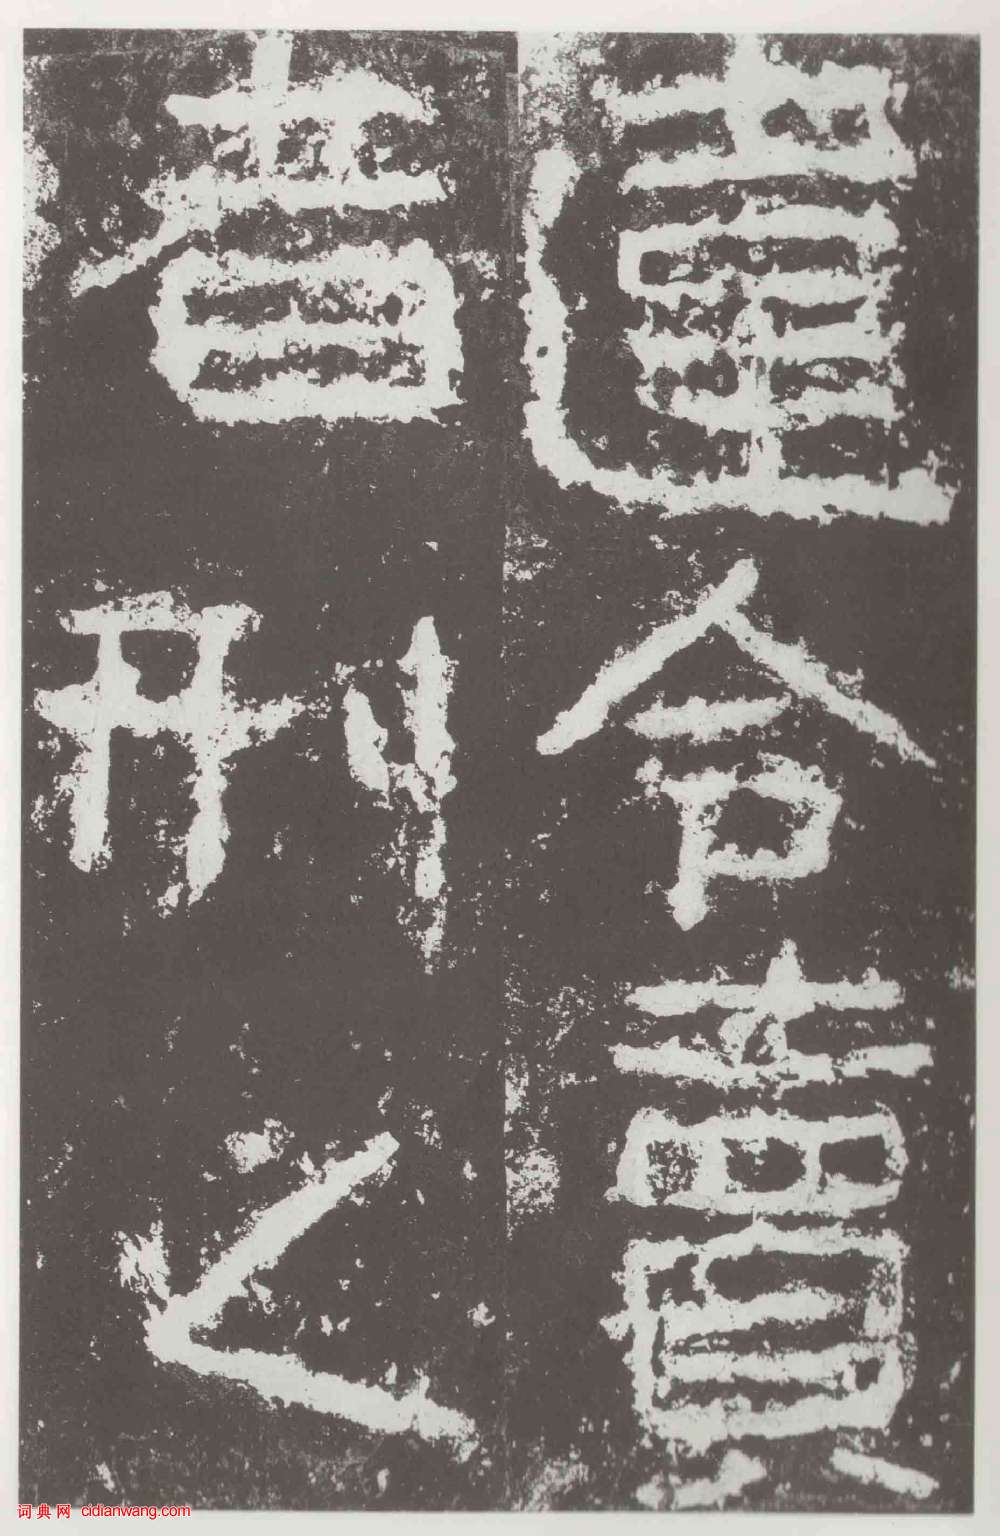 違令賣
者刑之
词典网 cidianwang.com